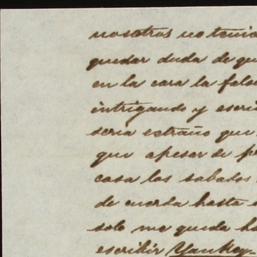 nosotros no tenía
quedar duda de qu
en la cara la fals
intrigando y escri
sería extraño que
que apesar de p
casa los sabados
de cuerda hasta
solo me queda ha
escribir Yankey